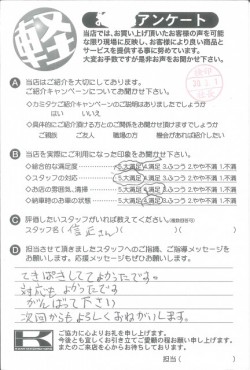 軽
お客様アンケート
当店では、お買い上げ頂いたお客様の声を可能
な限り現場に反映し、お客様により良い商品と
サービスを提供する事に努めています。
大変お手数ですが是非お声をお聞かせ下さい。
A 当店はご紹介を大切にしております。
ご紹介キャンペーンについてお聞かせ下さい。
◇カミタケご紹介キャンペーンのご説明はありましたでしょうか
はい いいえ
◇具体的にご紹介頂ける方とのご関係をお聞かせ頂けますでしょうか
ご親族 ご友人 職場の方 機会があれば紹介したい
B 当店を実際にご利用になった印象をお聞かせ下さい。
◇総合的な満足度 5.大満足 4.満足 3.ふつう 2.やや不満 1.不満
◇スタッフの対応 5.大満足 4.満足 3.ふつう 2.やや不満 1.不満
◇お店の雰囲気、清掃 5.大満足 4.満足 3.ふつう 2.やや不満 1.不満
◇納車時のお車の状態 5.大満足 4.満足 3.ふつう 2.やや不満 1.不満
C 評価したいスタッフがいれば教えてください。(複数回答可)
スタッフ名( さん )( )
D 担当させて頂きましたスタッフへのご指摘、ご指導メッセージを
お願いします。応援メッセージもぜひお願いします。
てきぱきしててよかったです。
対応もよかったです
がんばって下さい
次回からもよろしくおねがいします。
K
ご協力に心よりお礼を申し上げます。
今後とも宜しくお引き立てご愛顧の程お願い申し上げます。
またのご来店を心からお待ちしております。
担当( )